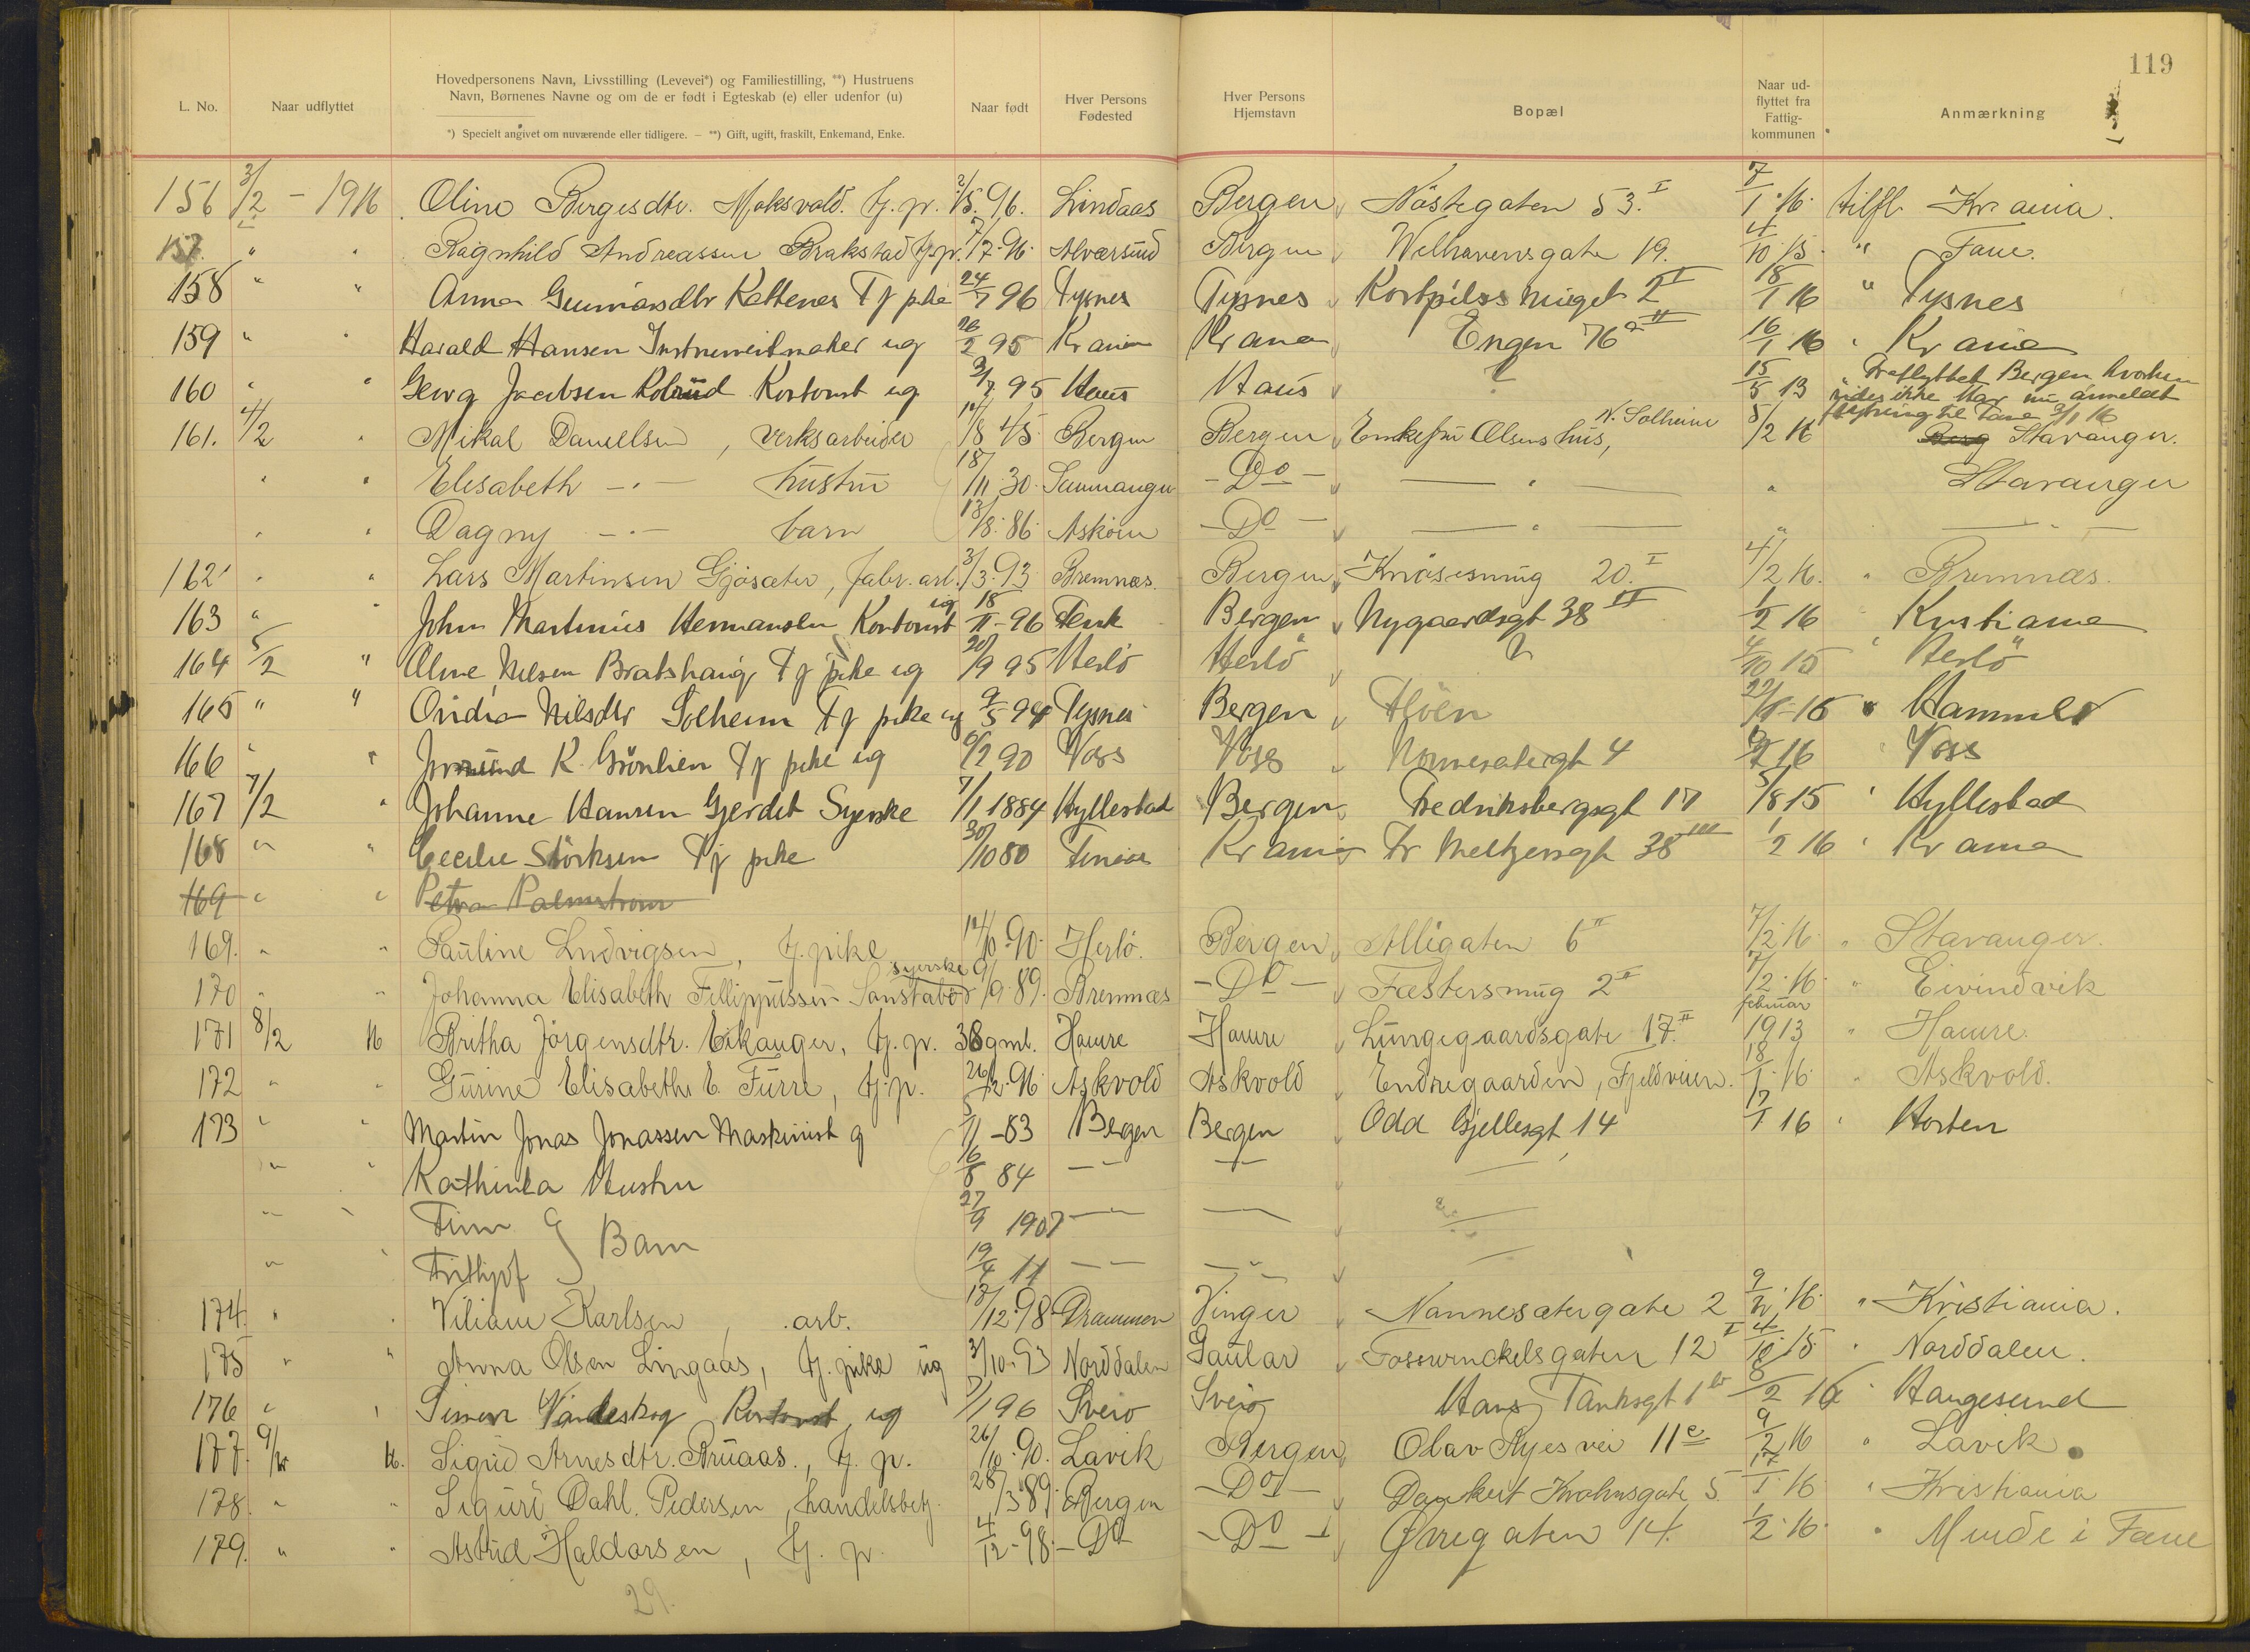 119
L. No.
Naar udflyttet
Hovedpersonens Navn, Livsstilling (Levevei*) og Familiestilling, **) Hustruens
Navn, Børnenes Navne og om de er født i Egteskab (e) eller udenfor (u)
*) Specielt angivet om nuværende eller tidligere. — **) Gift, ugift, fraskilt, Enkemand, Enke.
Naar født
Hver Persons
Fødested
Hver Persons
Hjemstavn
Bopæl
Naar ud-
flyttet fra
Fattig-
kommunen
Anmærkning
156 3/2 - 1916 Oline Bergesdtr. Moksvold. tj. p. 2/5. 96. Lindaas Bergen Nöstegaten 53. I 7/1. 16. tilfl. Kr.ania.
157. " " Ragnhild Andreassen Brakstad tj.p. 7/7. 96 Alværsund Bergen Welhavensgate 19. 4/10 15. " Fane.
158 " " Anna Gunnarsdtr Kattenes Tj pike 24/7 96 Tysnes Tysnes 2 II 18/1 16 " Tysnes
159 " " Harald Hansen Instrumentmaker ug 26/2 95 Kr ania Kr ania Engen 76 a II 16/1 16 " Kr ania
160 " " Georg Jacobsen Kontorist ug 95 Haus Haus 15/5 13 " Fraflyttet Bergen hvorhen
vides ikke Har nu anmeldt
flytning til Fane 3/1 16
161. 4/2 " Mikal Danielsen, verksarbeider 14/8 45 Bergen Bergen Enkefru Olsens hus, N. Solheim 5/2 16 Berg Stavanger.
" " Elisabeth - " - hustru 18/11. 30. -Do- — " — " Stavanger
" " Dagny - " - barn 13/8. 86. Asköen -Do- — " — " — " —
162 " " Lars Martinsen Gjösæter, fabr. arb. 3/3. 93 Bremnæs. Bergen 20. I 4/2 16. " Bremnæs.
163 " " John Martinius Hermansen Kontorist ug 18/11-96 Bergen Nygaardsgt 38 II 1/2 16 " Kristiania
164 5/2 " Oline Nilsen Bratshaug Tj pike ug 20/9 95 Herlö Herlö 4/10 15 " Herlö
165 " " Ovidia Nilsdtr Solheim Tj pike ug 9/5 94 Tysnes Bergen Flöen 29/1-16 " Hammer
166 " " K. Grönlien Tj pike ug 6/2 90 Voss Voss Nonnesætergt 4 16 " Voss
167 7/2 " Johanne Hansen Gjerdet Syerske 7/1 1884 Hyllestad Bergen Fredriksbergsgt 17 5/8 15 " Hyllestad
168 " " Cecilie Störksen Tj pike 30/10 80 Kr ania Fr Meltzersgt 38 III 1/2 16 " Kr ania
169 " " Petra Palmstrøm
169. " " Pauline Ludvigsen, tj. pike 14/10. 90. Herlö. Bergen Allégaten 6 II 7/2. 16 " Stavanger.
170 " " Johanna Elisabeth Fillippussen syerske 9/9. 89. Bremnæs -Do- Fæstersmug 2 I 7/2. 16. " Eivindvik
171 8/2 16 Britha Jörgensdtr. Eikanger, tj. p. 38 gml. Hamre Hamre Lungegaardsgate 17. II februar 1913 " Hamre.
172 " " Gurine Elisabethe E. Furre, tj. p. 26/12. 96 Askvold Askvold Endregaarden, Fjeldveien. 18/1. 16. " Askvold.
173 " " Martin Jonas Jonassen Maskinist g 5/11-83 Bergen Bergen Odd Gjellesgt 14 17/1 16 " Horten
" " Kathinka Hustru 16/8 84 — " — — " — — " —
" " Finn } Barn 27/9 1907 — " —
" " Frithjof 19/4 11 — " — — " —
174. " " Viliam Karlsen, arb. 18/12. 98. Drammen Vinger Nonnesætergate 2 9/2. 16. " Kristiania.
175 " " Anna Olsen Lingaas, tj. pike ug 3/10. 93 Norddalen Gaular Fosswinckelsgaten 12 I 4/10. 15. " Norddalen.
176 " " Simon Vandeskog Kontorist ug 7/1 96 Sveio Sveio Hans Tanksgt 1 b 8/2 16 " Haugesund
177. 9/2 16. Sigrid Arnesdtr. Bruaas., tj. p. 26/10. 90. Lavik Bergen Olav Ryes vei 11 c 9/2 16 " Lavik.
178. " " Sigurd Dahl. Pedersen, handelsbetj. 28/3 89. Bergen -Do- Dankert Krohnsgate 5. 17/1. 16 " Kristiania
179. " " Astrid Haldorsen, tj. p. 4/12-98. -Do- -Do- Øvregaten 14. 1/2. 16. " Minde i Fane
29.